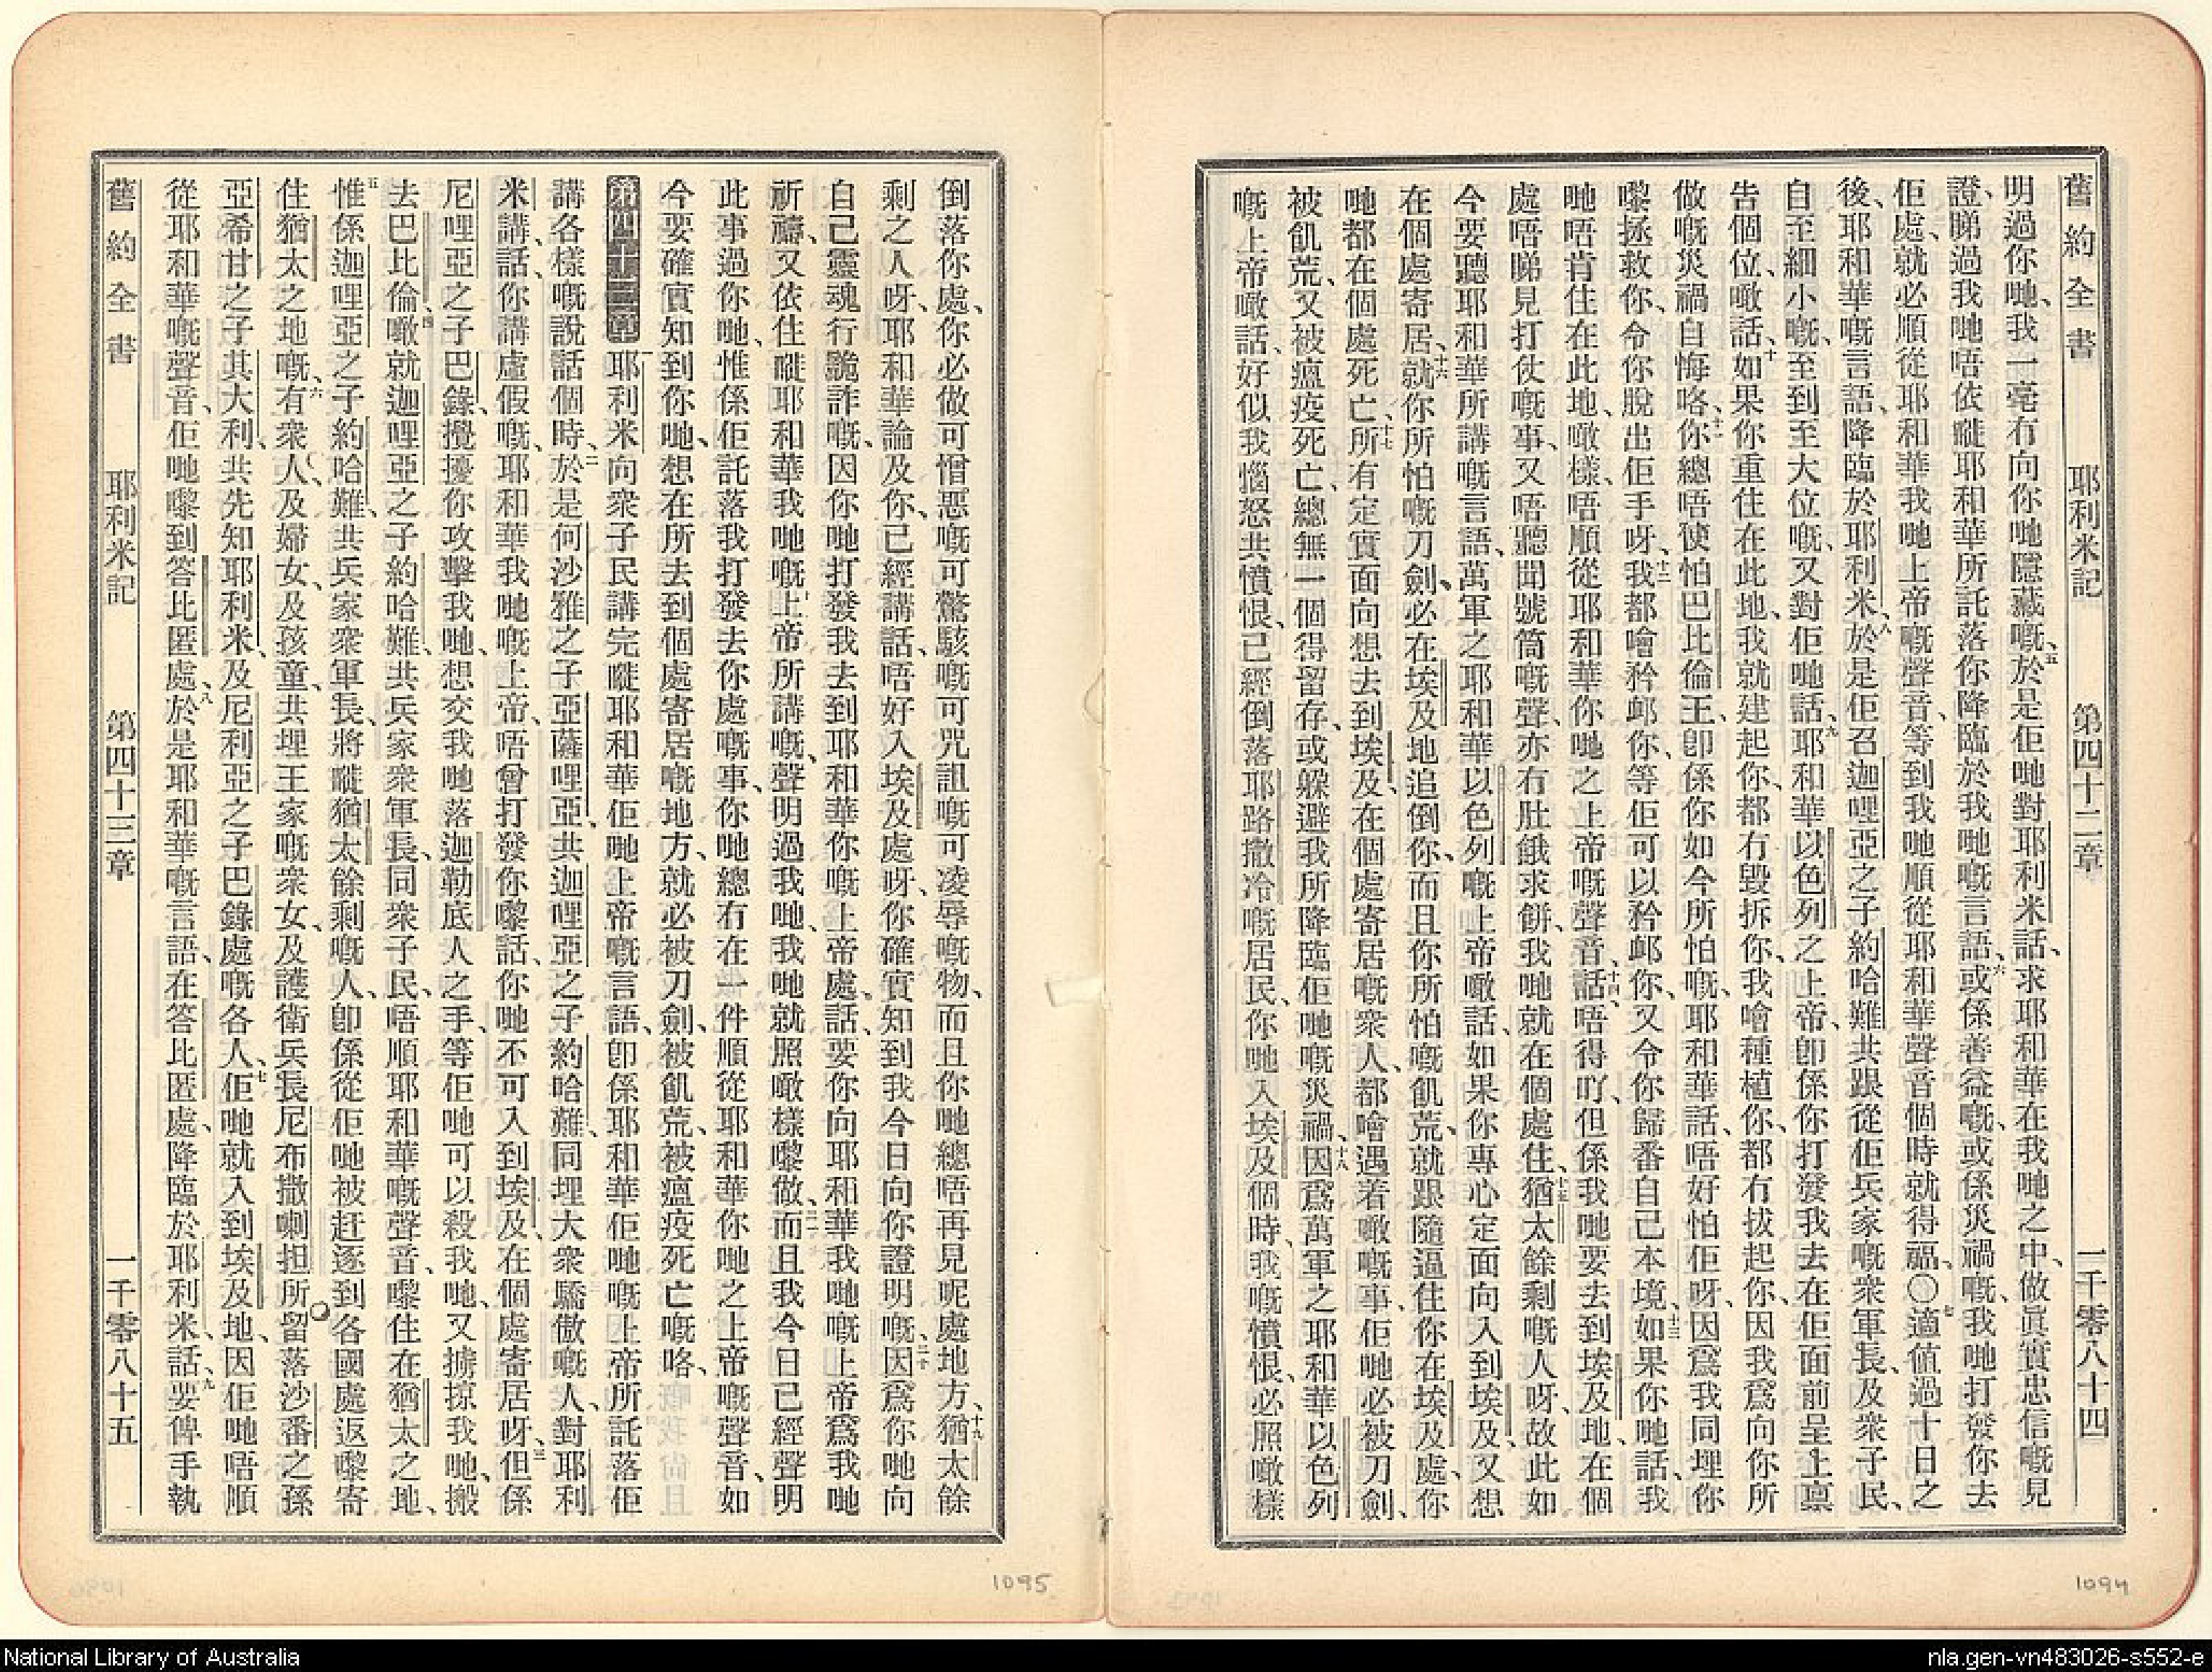 舊約全書 耶利米記 第四十二章 一千零八十四
明過你哋、我一毫冇向你哋隱藏嘅、五於是佢哋對耶利米話、求耶和華在我哋之中、做眞實忠信嘅見
證、睇過我哋唔依嚹耶和華所託落你降臨於我哋嘅言語、六或係善益嘅、或係災禍嘅、我哋打發你去
佢處、就必順從耶和華我哋上帝嘅聲音、等到我哋順從耶和華聲音個時就得福、〇七適值過十日之
後、耶和華嘅言語、降臨於耶利米、八於是佢召迦哩亞之子約哈難共跟從佢兵家嘅衆軍長、及衆子民、
自至細小嘅、至到至大位嘅、又對佢哋話、九耶和華以色列之上帝、卽係你打發我去在佢面前呈上禀
告個位、噉話、十如果你重住在此地、我就建起你、都冇毀拆你、我噲種植你、都冇拔起你、因我爲向你所
做嘅災禍自悔咯、十一你總唔使怕巴比倫王、卽係你如今所怕嘅、耶和華話、唔好怕佢呀、因爲我同埋你
嚟拯救你、令你脫出佢手呀、十二我都噲矜卹你、等佢可以矜卹你、又令你歸番自己本境、十三如果你哋話、我
哋唔肯住在此地、噉樣、唔順從耶和華你哋之上帝嘅聲音、十四話、唔得吖、但係我哋要去到埃及地、在個
處唔睇見打仗嘅事、又唔聽聞號筒嘅聲、亦冇肚餓求餅、我哋就在個處住、十五猶太餘剩嘅人呀、故此如
今要聽耶和華所講嘅言語、萬軍之耶和華以色列嘅上帝噉話、如果你專心定面向入到埃及、又想
在個處寄居、十六就你所怕嘅刀劍、必在埃及地追倒你、而且你所怕嘅飢荒、就跟隨逼住你在埃及處、你
哋都在個處死亡、十七所有定實面向想去到埃及、在個處寄居嘅衆人、都噲遇着噉嘅事、佢哋必被刀劍、
被飢荒、又被瘟疫死亡、總無一個得留存、或躲避我所降臨佢哋嘅災禍、十八因爲萬軍之耶和華以色列
嘅上帝噉話、好似我惱怒共憤恨、已經倒落耶路撒冷嘅居民、你哋入埃及個時、我嘅憤恨、必照噉樣
1094
倒落你處、你必做可憎惡嘅可驚駭嘅可咒詛嘅可凌辱嘅物、而且你哋總唔再見呢處地方、十九猶太餘
剩之人呀、耶和華論及你、已經講話、唔好入埃及處呀、你確實知到我今日向你證明嘅、二十因爲你哋向
自己靈魂行詭詐嘅、因你哋打發我去到耶和華你嘅上帝處、話、要你向耶和華我哋嘅上帝爲我哋
祈禱、又依住嚹耶和華我哋嘅上帝所講嘅、聲明過我哋、我哋就照噉樣嚟做、二一而且我今日已經聲明
此事過你哋、惟係佢託落我打發去你處嘅事、你哋總冇在一件順從耶和華你哋之上帝嘅聲音、如
今要確實知到你哋、想在所去到個處寄居嘅地方、就必被刀劍、被飢荒、被瘟疫死亡嘅咯、
第四十三章 一耶利米向衆子民講完嚹耶和華佢哋上帝嘅言語、卽係耶和華佢哋嘅上帝所託落佢
講各樣嘅說話個時、二於是何沙雅之子亞薩哩亞、共迦哩亞之子約哈難、同埋大衆驕傲嘅人、對耶利
米講話、你講虛假嘅、耶和華我哋嘅上帝、唔曾打發你嚟話、你哋不可入到埃及、在個處寄居呀、三但係
尼哩亞之子巴錄、攪擾你攻擊我哋、想交我哋落迦勒底人之手、等佢哋可以殺我哋、又擄掠我哋、搬
去巴比倫、四噉就迦哩亞之子約哈難、共兵家衆軍長、同衆子民、唔順耶和華嘅聲音、嚟住在猶太之地、
五惟係迦哩亞之子約哈難、共兵家衆軍長、將嚹猶太餘剩嘅人、卽係從佢哋被赶逐到各國處返嚟寄
住猶太之地嘅、六有衆人、及婦女、及孩童、共埋王家嘅衆女、及護衛兵長尼布撒喇担所留落沙番之孫
亞希甘之子其大利、共先知耶利米、及尼利亞之子巴錄處嘅各人、七佢哋就入到埃及地、因佢哋唔順
從耶和華嘅聲音、佢哋嚟到答比匿處、八於是耶和華嘅言語、在答比匿處、降臨於耶利米、話、九要俾手執
舊約全書 耶利米記 第四十三章 一千零八十五
1095
National Library of Australia
nla.gen-vn483026-s552-e